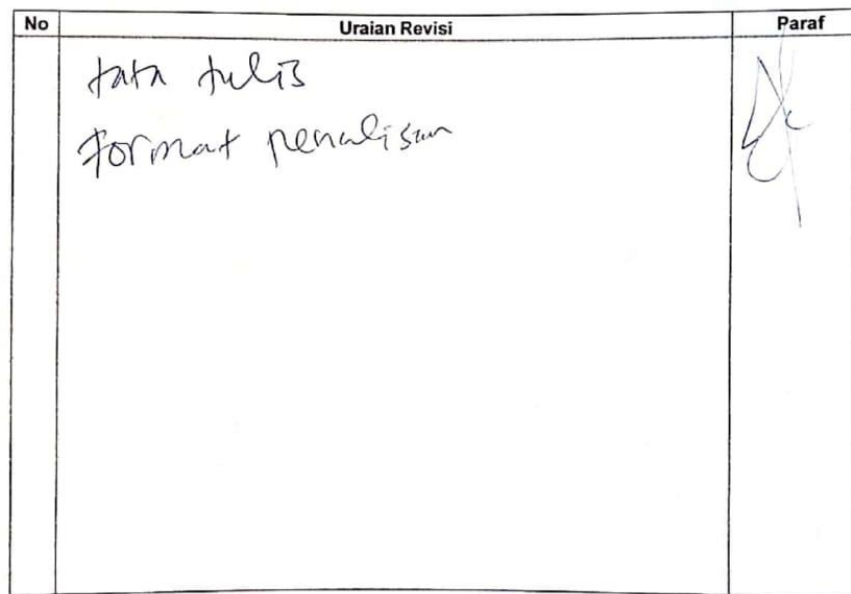 No Uraian Revisi Paraf
tata tulis
Format penulisan